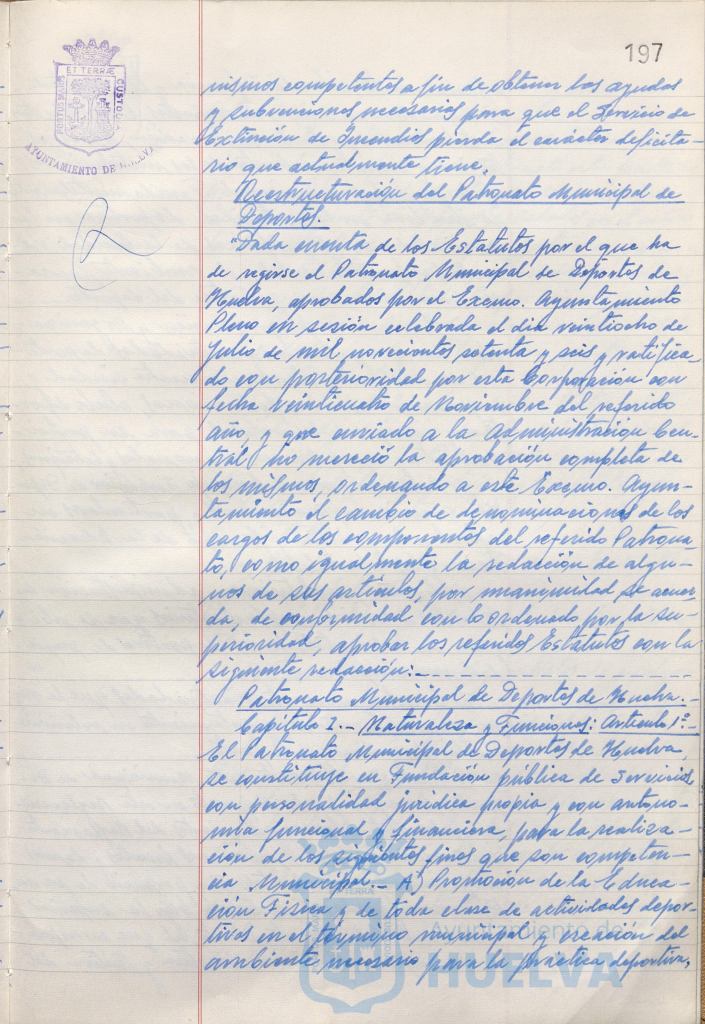 197
ET TERRÆ
CUSTODIA
PORTUS MARIS
AYUNTAMIENTO DE HUELVA
nismos competentes a fin de obtener las ayudas
y subvenciones necesarias para que el Servicio de
Extinción de Incendios pierda el carácter deficita-
rio que actualmente tiene.
Reestructuración del Patronato Municipal de
Deportes.
"Dada cuenta de los Estatutos por el que ha
de regirse el Patronato Municipal de Deportes de
Huelva, aprobados por el Excmo. Ayuntamiento
Pleno en sesión celebrada el día veintiocho de
Julio de mil novecientos setenta y seis y ratifica-
do con posterioridad por esta Corporación con
fecha veinticuatro de Noviembre del referido
año, y que enviado a la Administración Cen-
tral no mereció la aprobación completa de
los mismos, ordenando a este Excmo. Ayun-
tamiento el cambio de denominaciones de los
cargos de los componentes del referido Patrona-
to, como igualmente la redacción de algu-
nos de sus artículos, por unanimidad se acuer-
da, de conformidad con lo ordenado por la su-
perioridad, aprobar los referidos Estatutos con la
siguiente redacción:
Patronato Municipal de Deportes de Huelva.-
Capítulo I.- Naturaleza y Funciones: Artículo 1º.-
El Patronato Municipal de Deportes de Huelva,
se constituye en Fundación pública de Servicios
con personalidad jurídica propia y con autono-
mía funcional y financiera, para la realiza-
ción de los siguientes fines que son competen-
cia Municipal.- A) Promoción de la Educa-
ción Física y de toda clase de actividades depor-
tivas en el término municipal y creación del
ambiente necesario para la práctica deportiva,
Ayuntamiento de
HUELVA